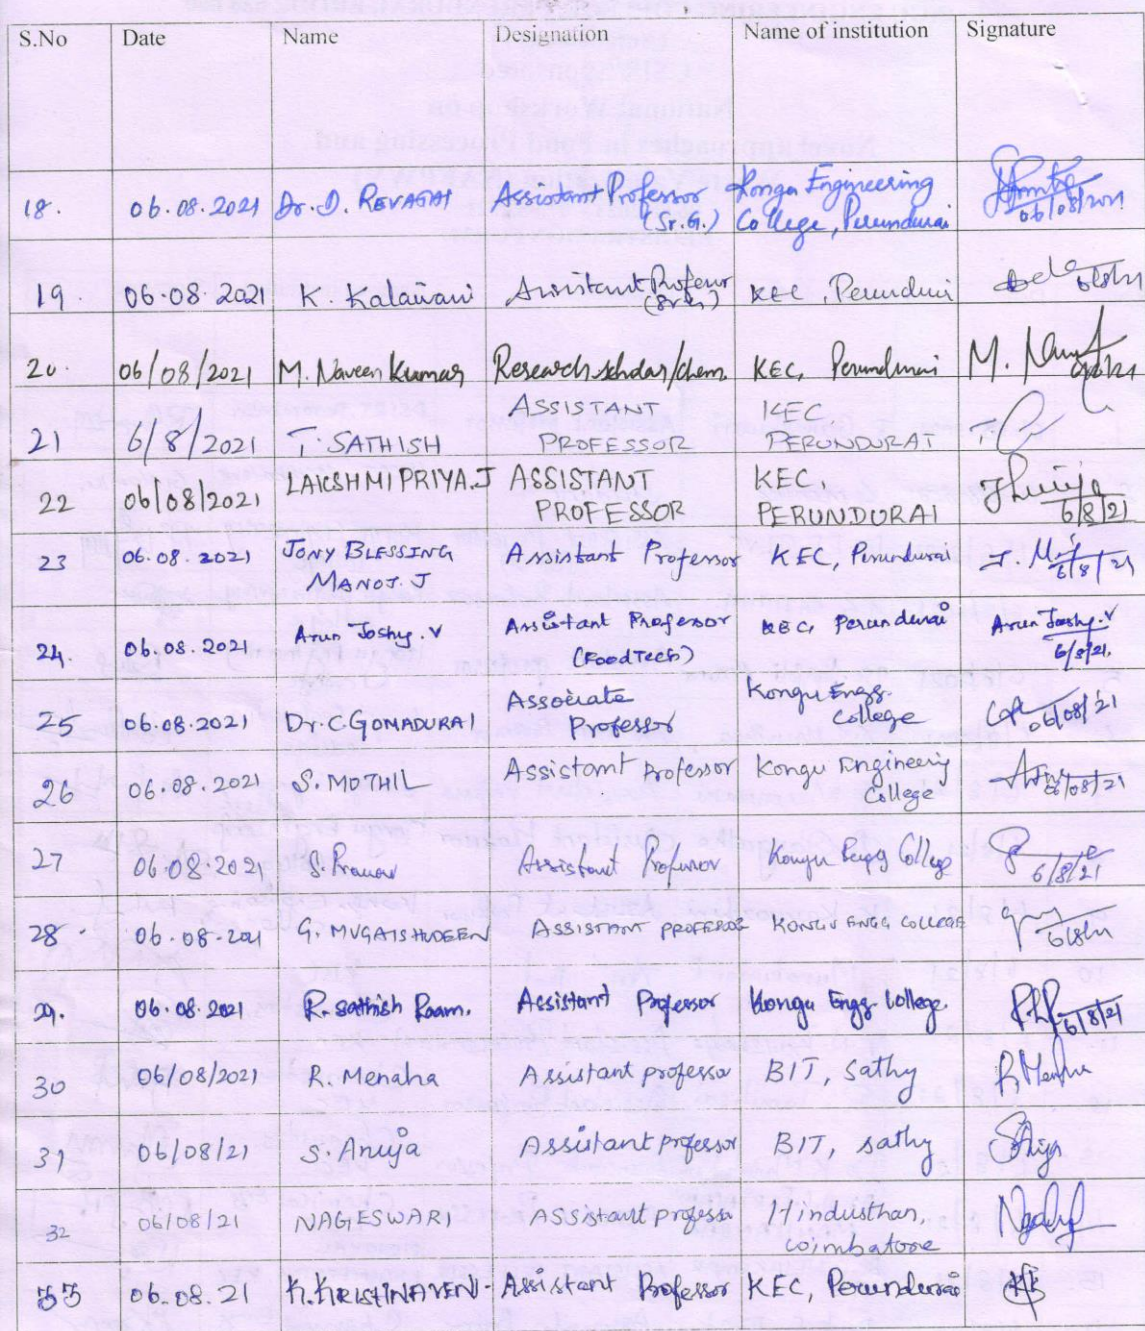 S.No Date Name Designation Name of institution Signature
18. 06.08.2021 Dr. D. REVATHI Assistant Professor Kongu Engineering
(Sr.G.) College, Perundurai 06/08/2021
19. 06.08.2021 K. Kalaivani Assistant Professor KEC, Perundurai
(Sr.G.)
20. 06/08/2021 M. Naveen Kumar Research scholar/chem. KEC, Perundurai M.
ASSISTANT KEC
21 6/8/2021 T. SATHISH PROFESSOR PERUNDURAI
22 06/08/2021 LAKSHMI PRIYA.J ASSISTANT KEC,
PROFESSOR PERUNDURAI 6/8/21
23 06.08.2021 JONY BLESSING Assistant Professor KEC, Perundurai J.
MANOJ. J 6/8/21
24. 06.08.2021 Arun Joshy. V Assistant Professor KEC, Perundurai Arun Joshy. V
(FoodTech) 6/8/21.
Associate Kongu Engg.
25 06.08.2021 Dr. C GOMADURAI Professor College 06/08/21
26 06.08.2021 S. MOTHIL Assistant Professor Kongu Engineering
College 06/08/21
27 06.08.2021 S. Pranav Assistant Professor Kongu Engg College
6/8/21
28 06.08.2021 G. MUGAISHUDEEN ASSISTANT PROFESSOR KONGU ENGG COLLEGE
6/8/21
29. 06.08.2021 R. Sathish Raam. Assistant Professor Kongu Engg. College. 6/8/21
30 06/08/2021 R. Menaha Assistant professor BIT, Sathy R Menaha
31 06/08/21 S. Anuja Assistant professor BIT, sathy
32 06/08/21 NAGESWARI ASSistant professor Hindusthan,
coimbatore
33 06.08.21 K. KRISHNAVENI Assistant Professor KEC, Perundurai